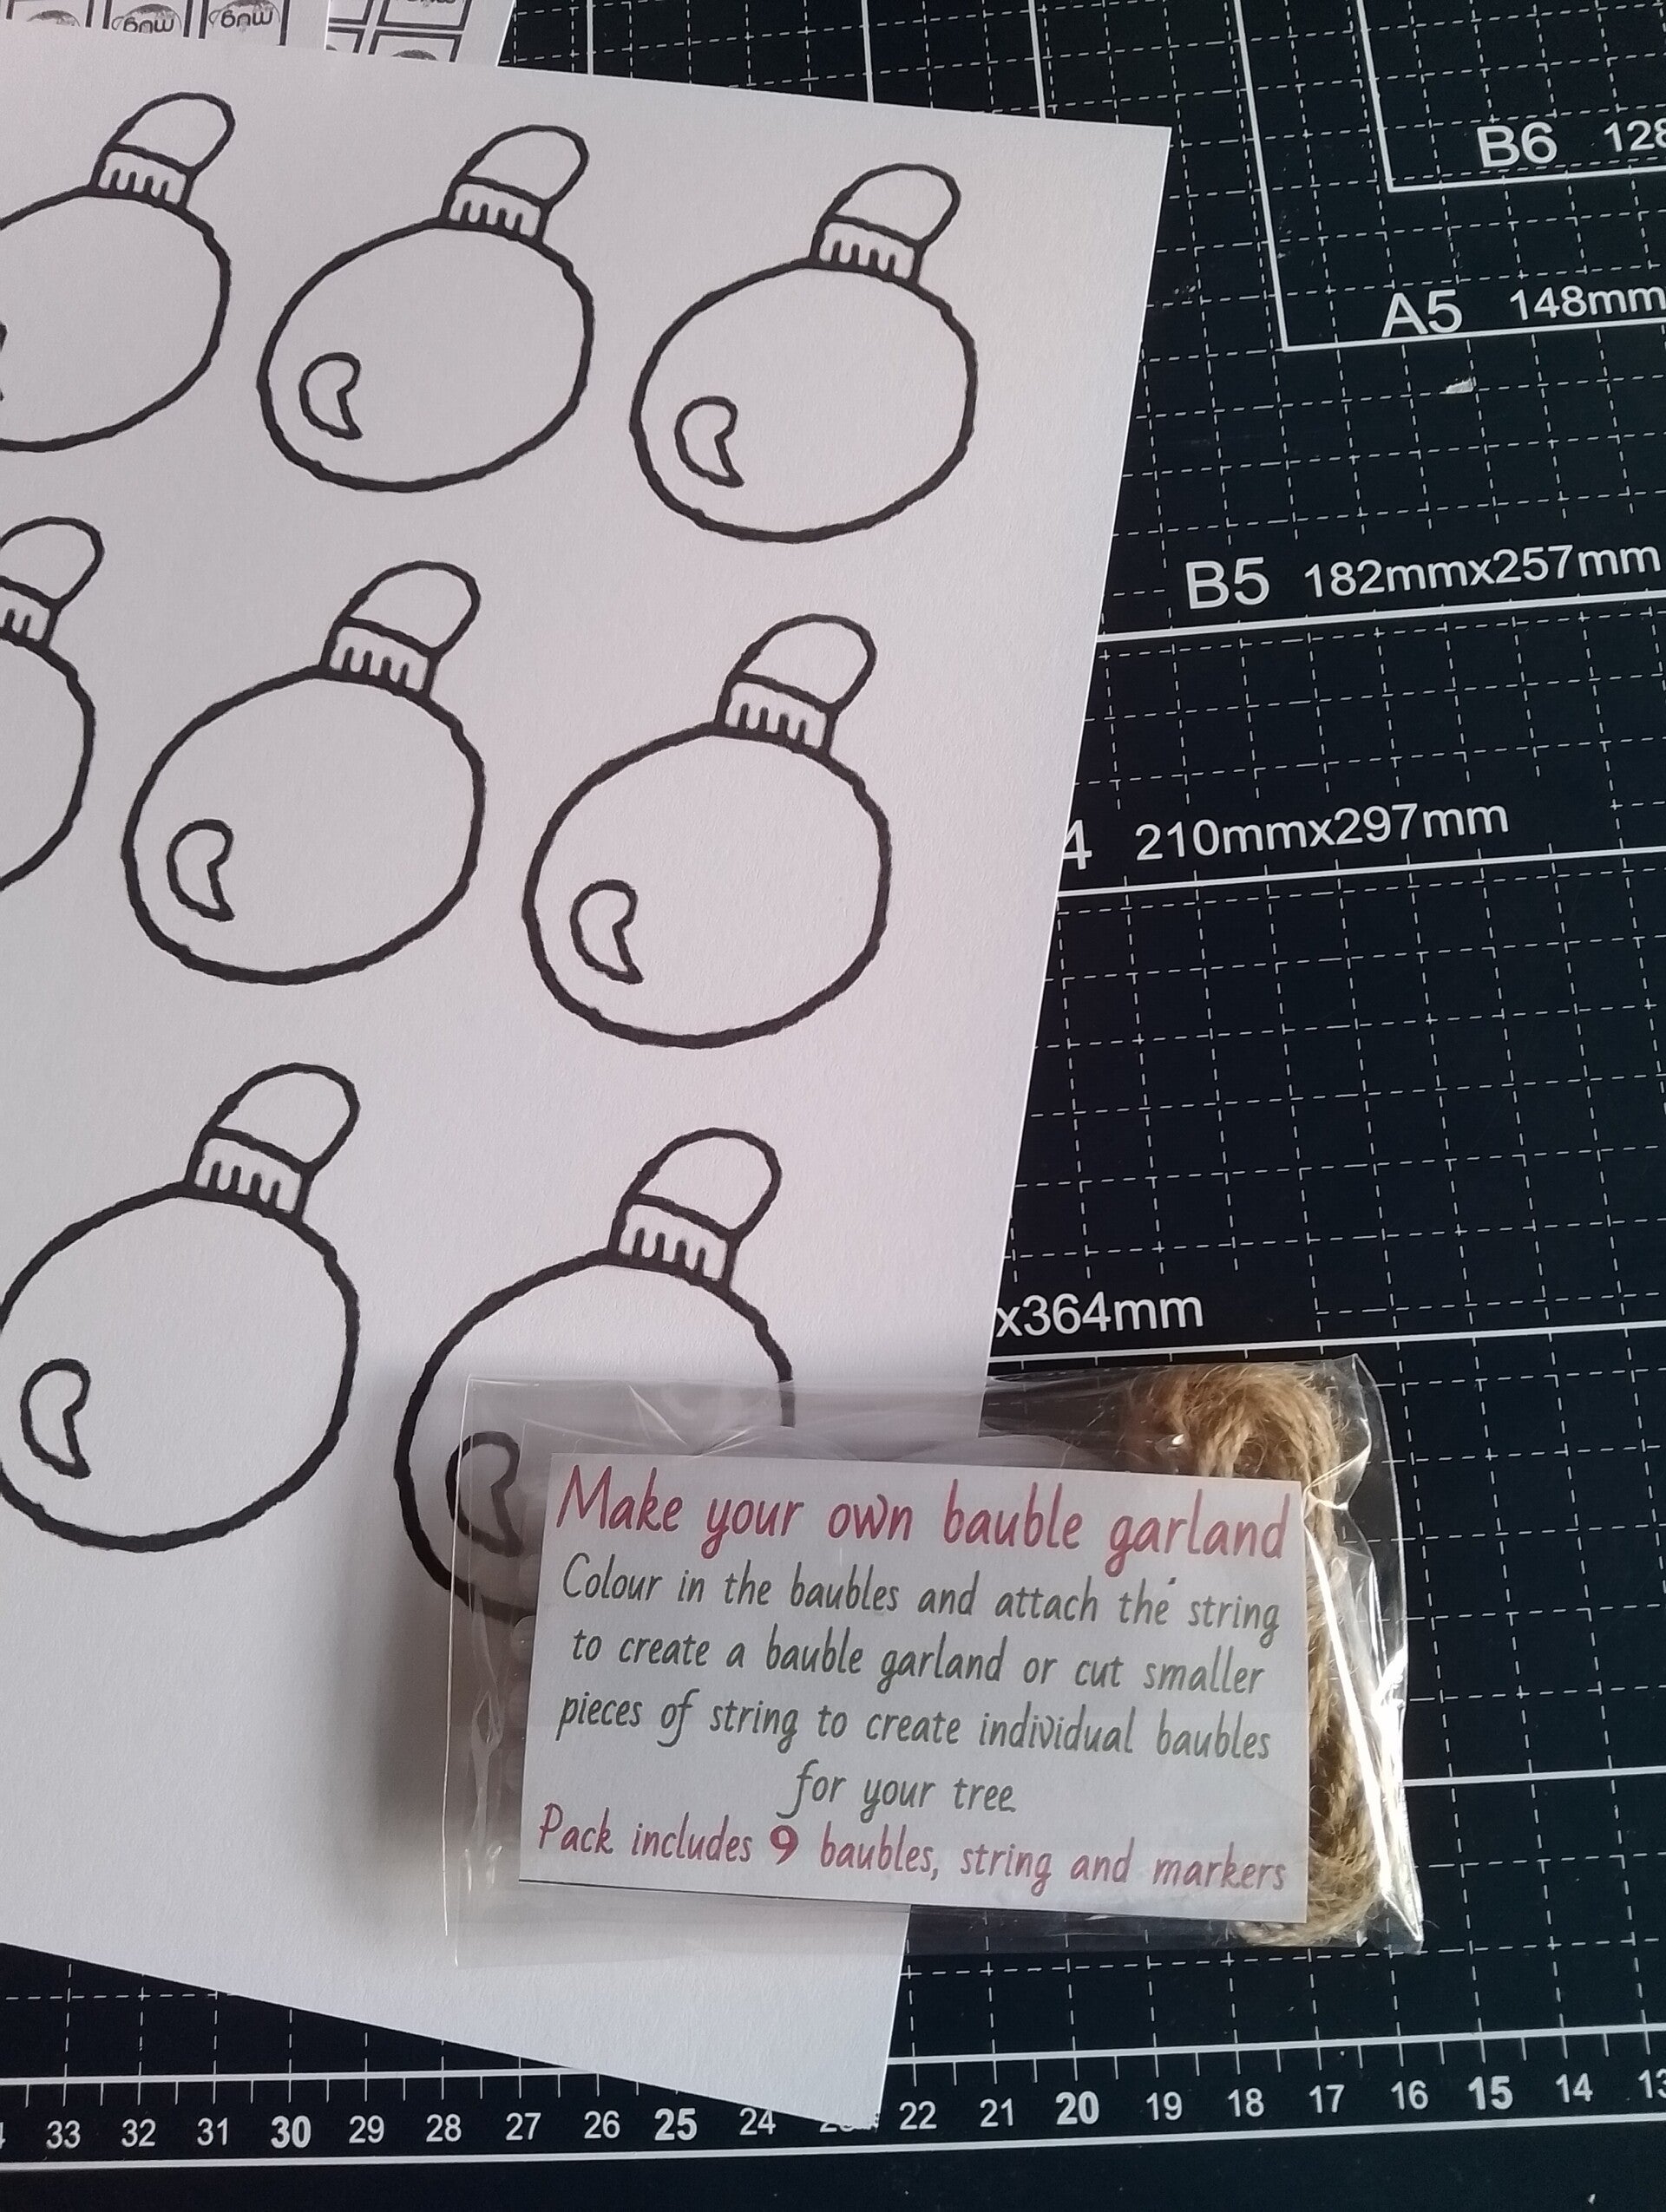 mug
mug
B6 128
A5 148mm
B5 182mmx257mm
4 210mmx297mm
x364mm
Make your own bauble garland
Colour in the baubles and attach the string
to create a bauble garland or cut smaller
pieces of string to create individual baubles
for your tree
Pack includes 9 baubles, string and markers
33 32 31 30 29 28 27 26 25 24 22 21 20 19 18 17 16 15 14 13